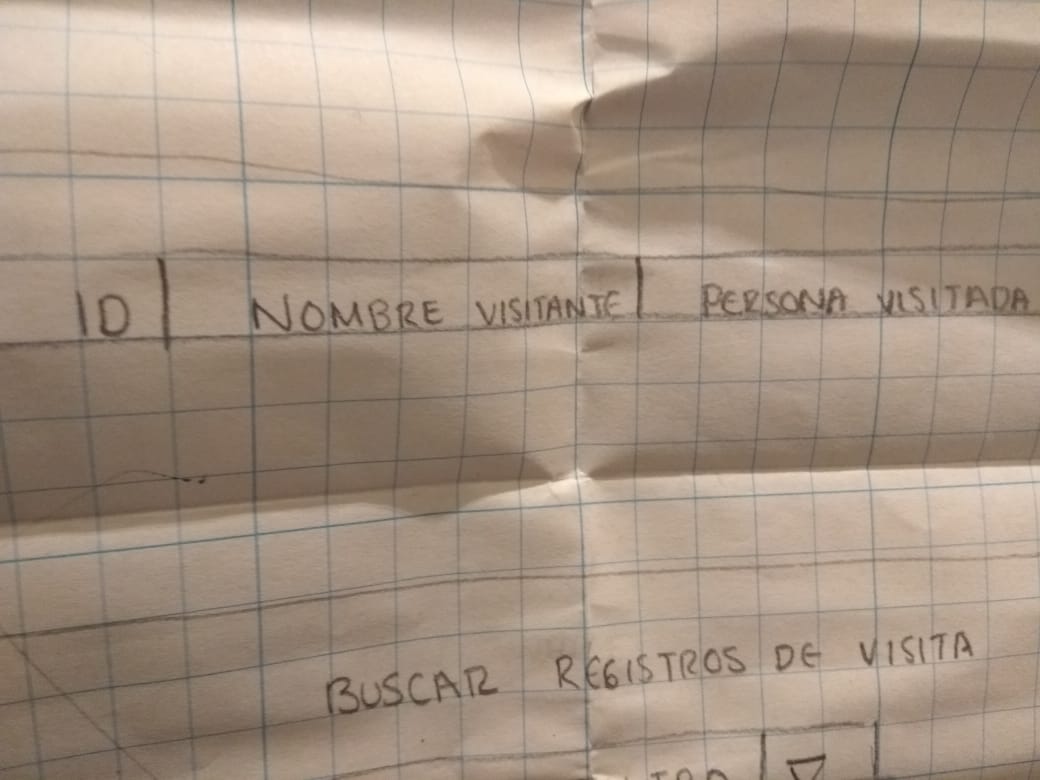 ID | NOMBRE VISITANTE | PERSONA VISITADA
BUSCAR REGISTROS DE VISITA